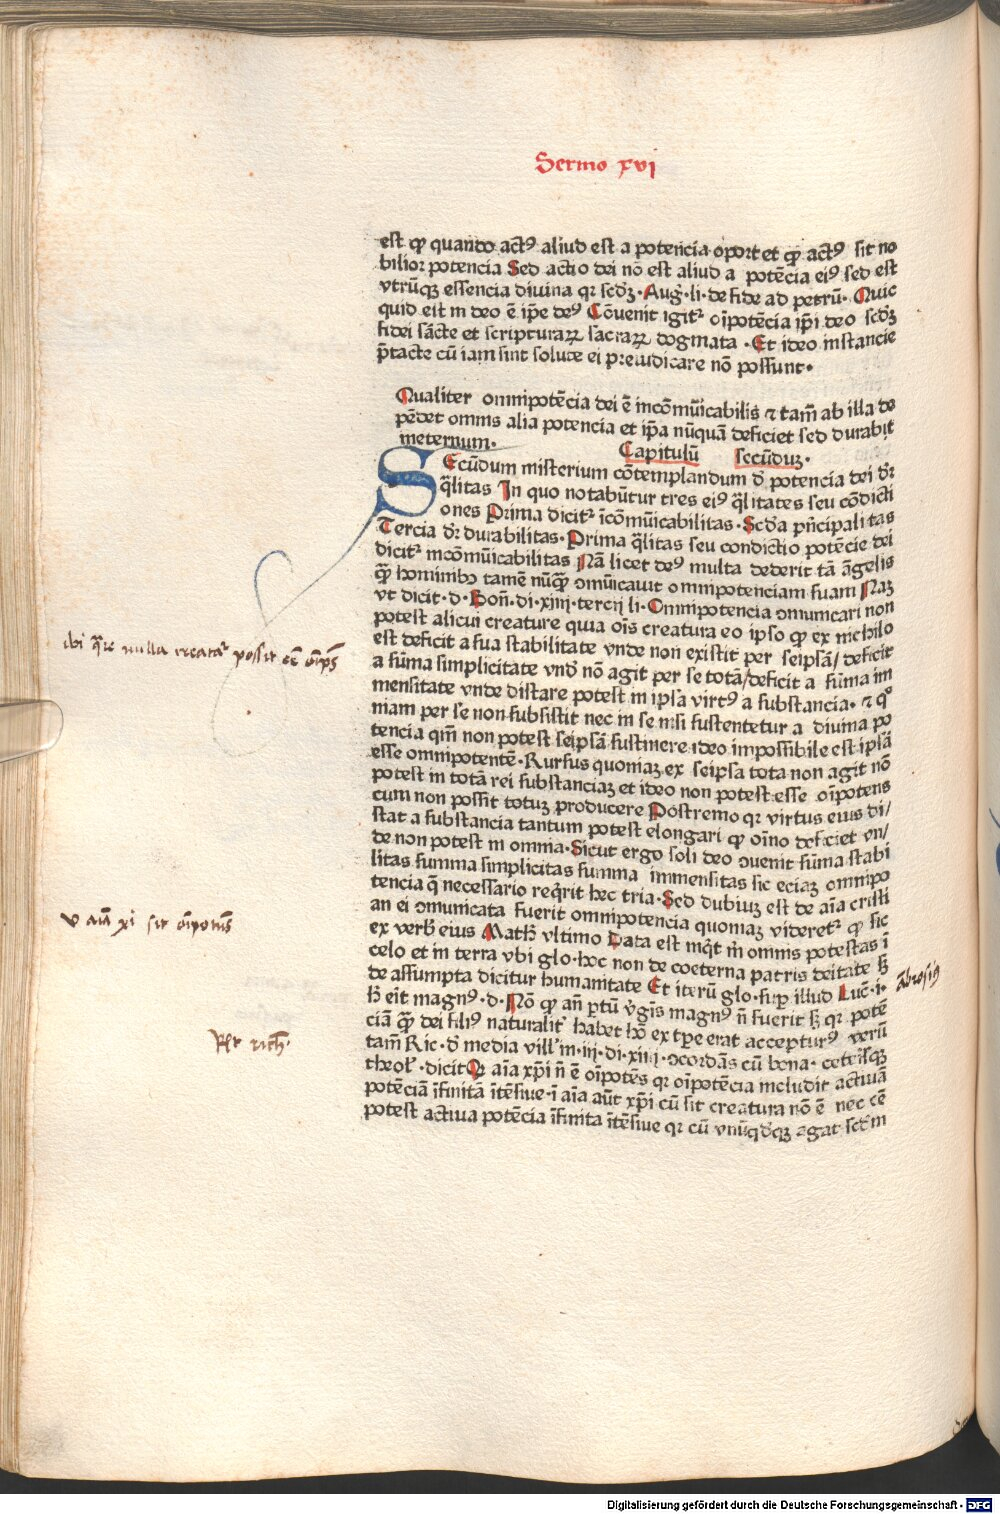 Sermo xvi
est ꝙ quando actꝰ aliud est a potencia oportet ꝙ actꝰ sit no
bilior potencia Sed actio dei nō est aliud a potēcia eiꝰ sed est
vtrūqꝫ essencia diuina qꝛ scdꝫ · Augꝰ · li · de fide ad petrū · Quic
quid est in deo ē ip̄e deꝰ Cōuenit igitᷣ oīpotēcia ip̄i deo scdꝫ
fidei sācte et scripturaꝝ sacraꝝ dogmata · Et ideo instancie
p̄tacte cū iam sint solute ei preiudicare nō possunt ·
Qualiter omnipotēcia dei ē incōmūicabilis ⁊ tam̄ ab illa de
pēdet omnis alia potencia et ip̄a nūquā deficiet sed durabit
ineternum ·
Capitulū secūduꝫ ·
SEcūdum misterium cōtemplandum d̄ potencia dei dr̄
q̄litas In quo notabūtur tres eiꝰ q̄litates seu cōdicti
ones Prima dicitᷣ īcōmūicabilitas · Scd̄a pn̄cipalitas
Tercia dr̄ durabilitas · Prima q̄litas seu condictio potēcie dei
dicitᷣ incōmūicabilitas Nā licet deꝰ multa dederit tā āgelis
ꝙ̄ hominibꝰ tamē nūꝙ̄ ↄmūicauit omnipotenciam suam Naꝫ
vt dicit · d · Bon̄ · di · xliij · tercij li · Omnipotencia ↄmunicari non
potest alicui creature quia oīs creatura eo ipso ꝙ ex nichilo
est deficit a sua stabilitate vnde non existit per seipsā/ deficit
a sūma simplicitate vnd̄ nō agit per se totā/deficit a sūma im
mensitate vnde distare potest in ipsa virtꝰ a substancia · ⁊ qº
niam per se non subsistit nec in se nisi sustentetur a diuina po
tencia qm̄ non potest seipsā sustinere ideo impossibile est ipsā
esse omnipotentē · Rursus quoniaꝫ ex seipsa tota non agit nō
potest in totā rei substanciaꝫ et ideo non potest esse oīpotens
cum non possit totuꝫ producere Postremo qꝛ virtus eius di/
stat a substancia tantum potest elongari ꝙ oīno deficiet vn/
de non potest in omnia · Sicut ergo soli deo ↄuenit sūma stabi
litas summa simplicitas summa immensitas sic eciaꝫ omnipo
tencia q̄ necessario reqᷣrit hec tria · Sed dubiuꝫ est de aīa cristi
an ei ↄmunicata fuerit omnipotencia quoniaꝫ videretᷣ ꝙ sic
ex verbꝭ eius Mathꝭ vltimo Data est mꝗt m̄ omnis potestas ī
celo et in terra vbi glo · hoc non de coeterna patris deitate sꝫ
de assumpta dicitur humanitate Et iterū glo · sup̄ illud Luc̄ · i ·
hꝭ eīt magnꝰ · d · Nō ꝙ an̄ ꝑtū v̄gīs magnꝰ n̄ fuerit sꝫ qꝛ potē
ciā ꝙ̄ dei filiꝰ naturalitᷣ habet hō ex tꝑe erat accepturꝰ verū
tam̄ Ric · d̄ media villꝭ in · iij · di · xiiij · ↄcordās cū bona · ceteris̄qꝫ
theolꝭ · dicit Qꝛ aīa xp̄i n̄ ē oīpotēs qꝛ oīpotēcia includit actiuā
potēciā īfinitā ītēsiue · ī aīa aūt xp̄i cū sit creatura nō ē nec eē
potest actiua potēcia īfinita ītēsiue qꝛ cū vnūqd̄qꝫ agat scd̄m
ibi qᷓre nulla creatᷣ possit eē oīps̄
v aīa xi sit oīpotēns
Abrosiꝰ
Rich̄
Digitalisierung gefördert durch die Deutsche Forschungsgemeinschaft · DFG